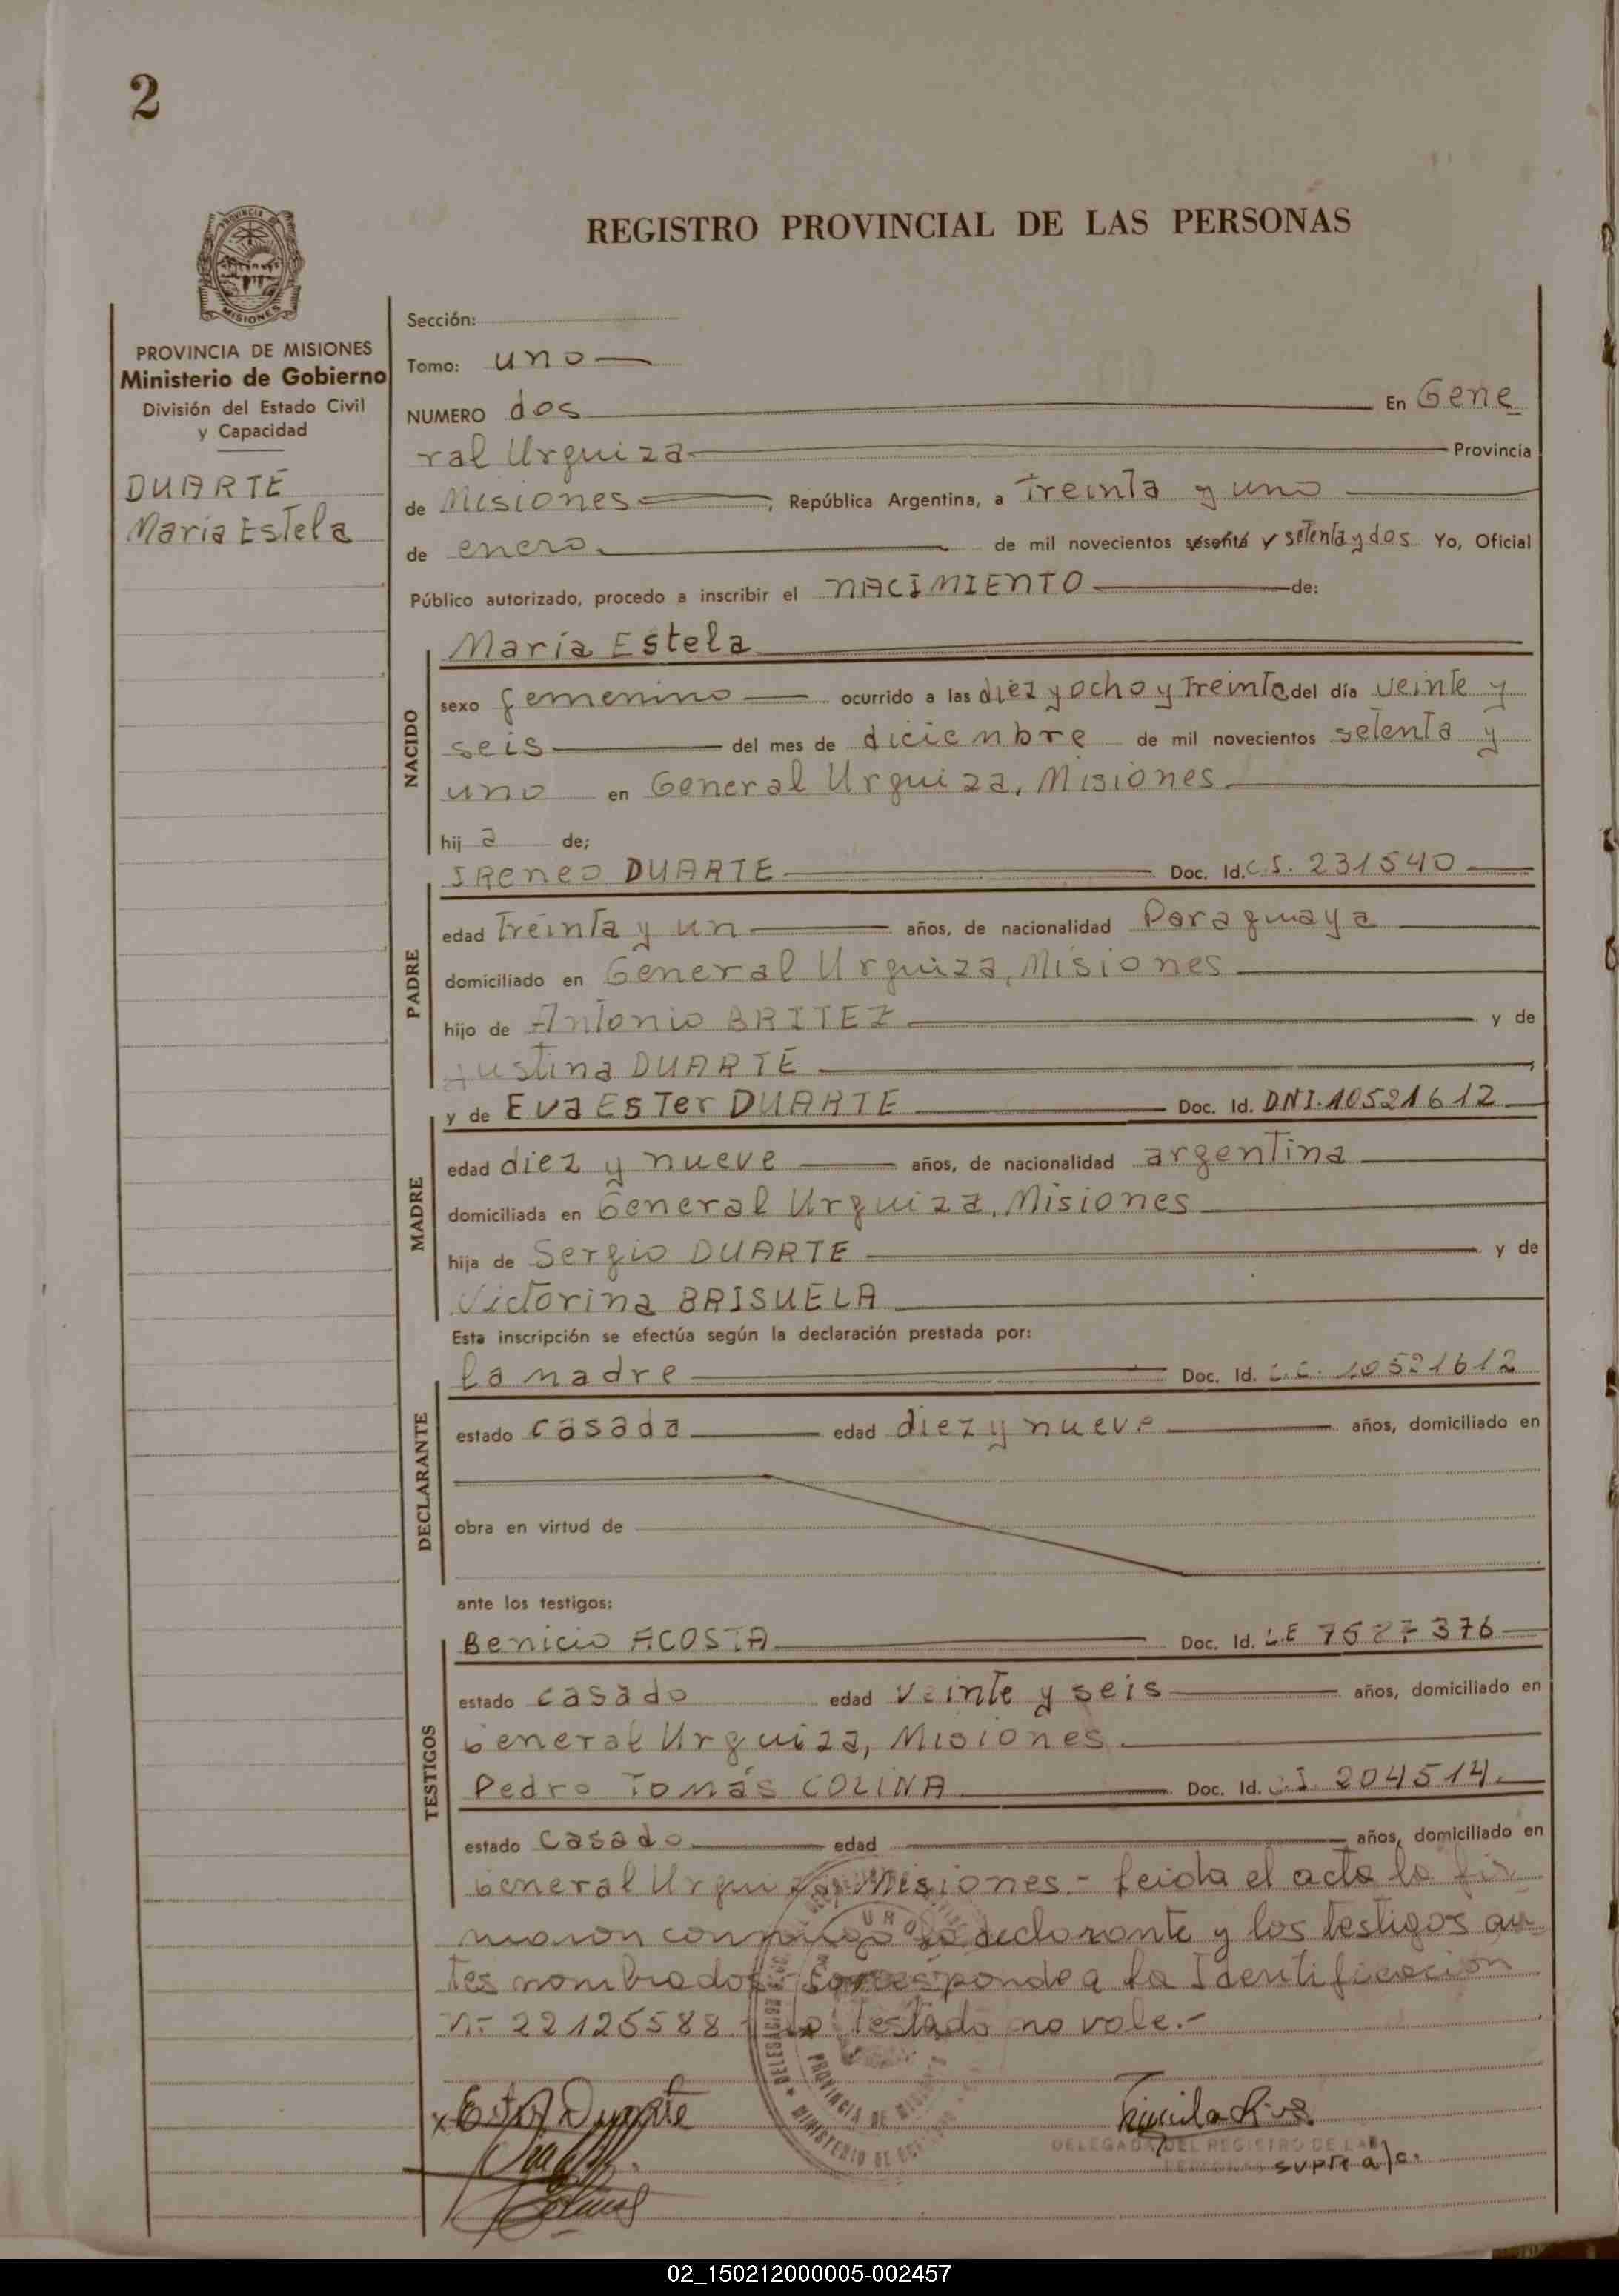 2
REGISTRO PROVINCIAL DE LAS PERSONAS
PROVINCIA DE MISIONES
Ministerio de Gobierno
División del Estado Civil
y Capacidad
DUARTE
María Estela
Sección:
Tomo: uno
NUMERO dos En Gene
ral Urquiza Provincia
de Misiones, República Argentina, a Treinta y uno
de enero de mil novecientos sesenta y setenta y dos Yo, Oficial
Público autorizado, procedo a inscribir el NACIMIENTO de:
NACIDO
María Estela
sexo femenino ocurrido a las diez y ocho y Treinta del día veinte y
seis del mes de diciembre de mil novecientos setenta y
uno en General Urquiza, Misiones
hij a de;
PADRE
Ireneo DUARTE Doc. Id. C.I. 231540
edad Treinta y un años, de nacionalidad Paraguaya
domiciliado en General Urquiza, Misiones
hijo de Antonio BRITEZ y de
Justina DUARTE
MADRE
y de Eva Ester DUARTE Doc. Id. DNI. 10521612
edad diez y nueve años, de nacionalidad argentina
domiciliada en General Urquiza, Misiones
hija de Sergio DUARTE y de
Victorina BRISUELA
Esta inscripción se efectúa según la declaración prestada por:
DECLARANTE
la madre Doc. Id. L.C. 10521612
estado casada edad diez y nueve años, domiciliado en
obra en virtud de
ante los testigos:
TESTIGOS
Benicio ACOSTA Doc. Id. L.E 7587376
estado casado edad veinte y seis años, domiciliado en
General Urquiza, Misiones.
Pedro Tomás COLINA Doc. Id. C.I. 204514.
estado casado edad años, domiciliado en
General Urquiza, Misiones.- leida el acta la fir
maron conmigo la declarante y los testigos an
tes nombrados corresponde a la Identificación
n.- 22125588 - lo testado no vale.-
PROVINCIA DE MISIONES
MINISTERIO DE
Ester Duarte
DELEGADA DEL REGISTRO DE LAS
PERSONAS suple a/c.
02_150212000005-002457